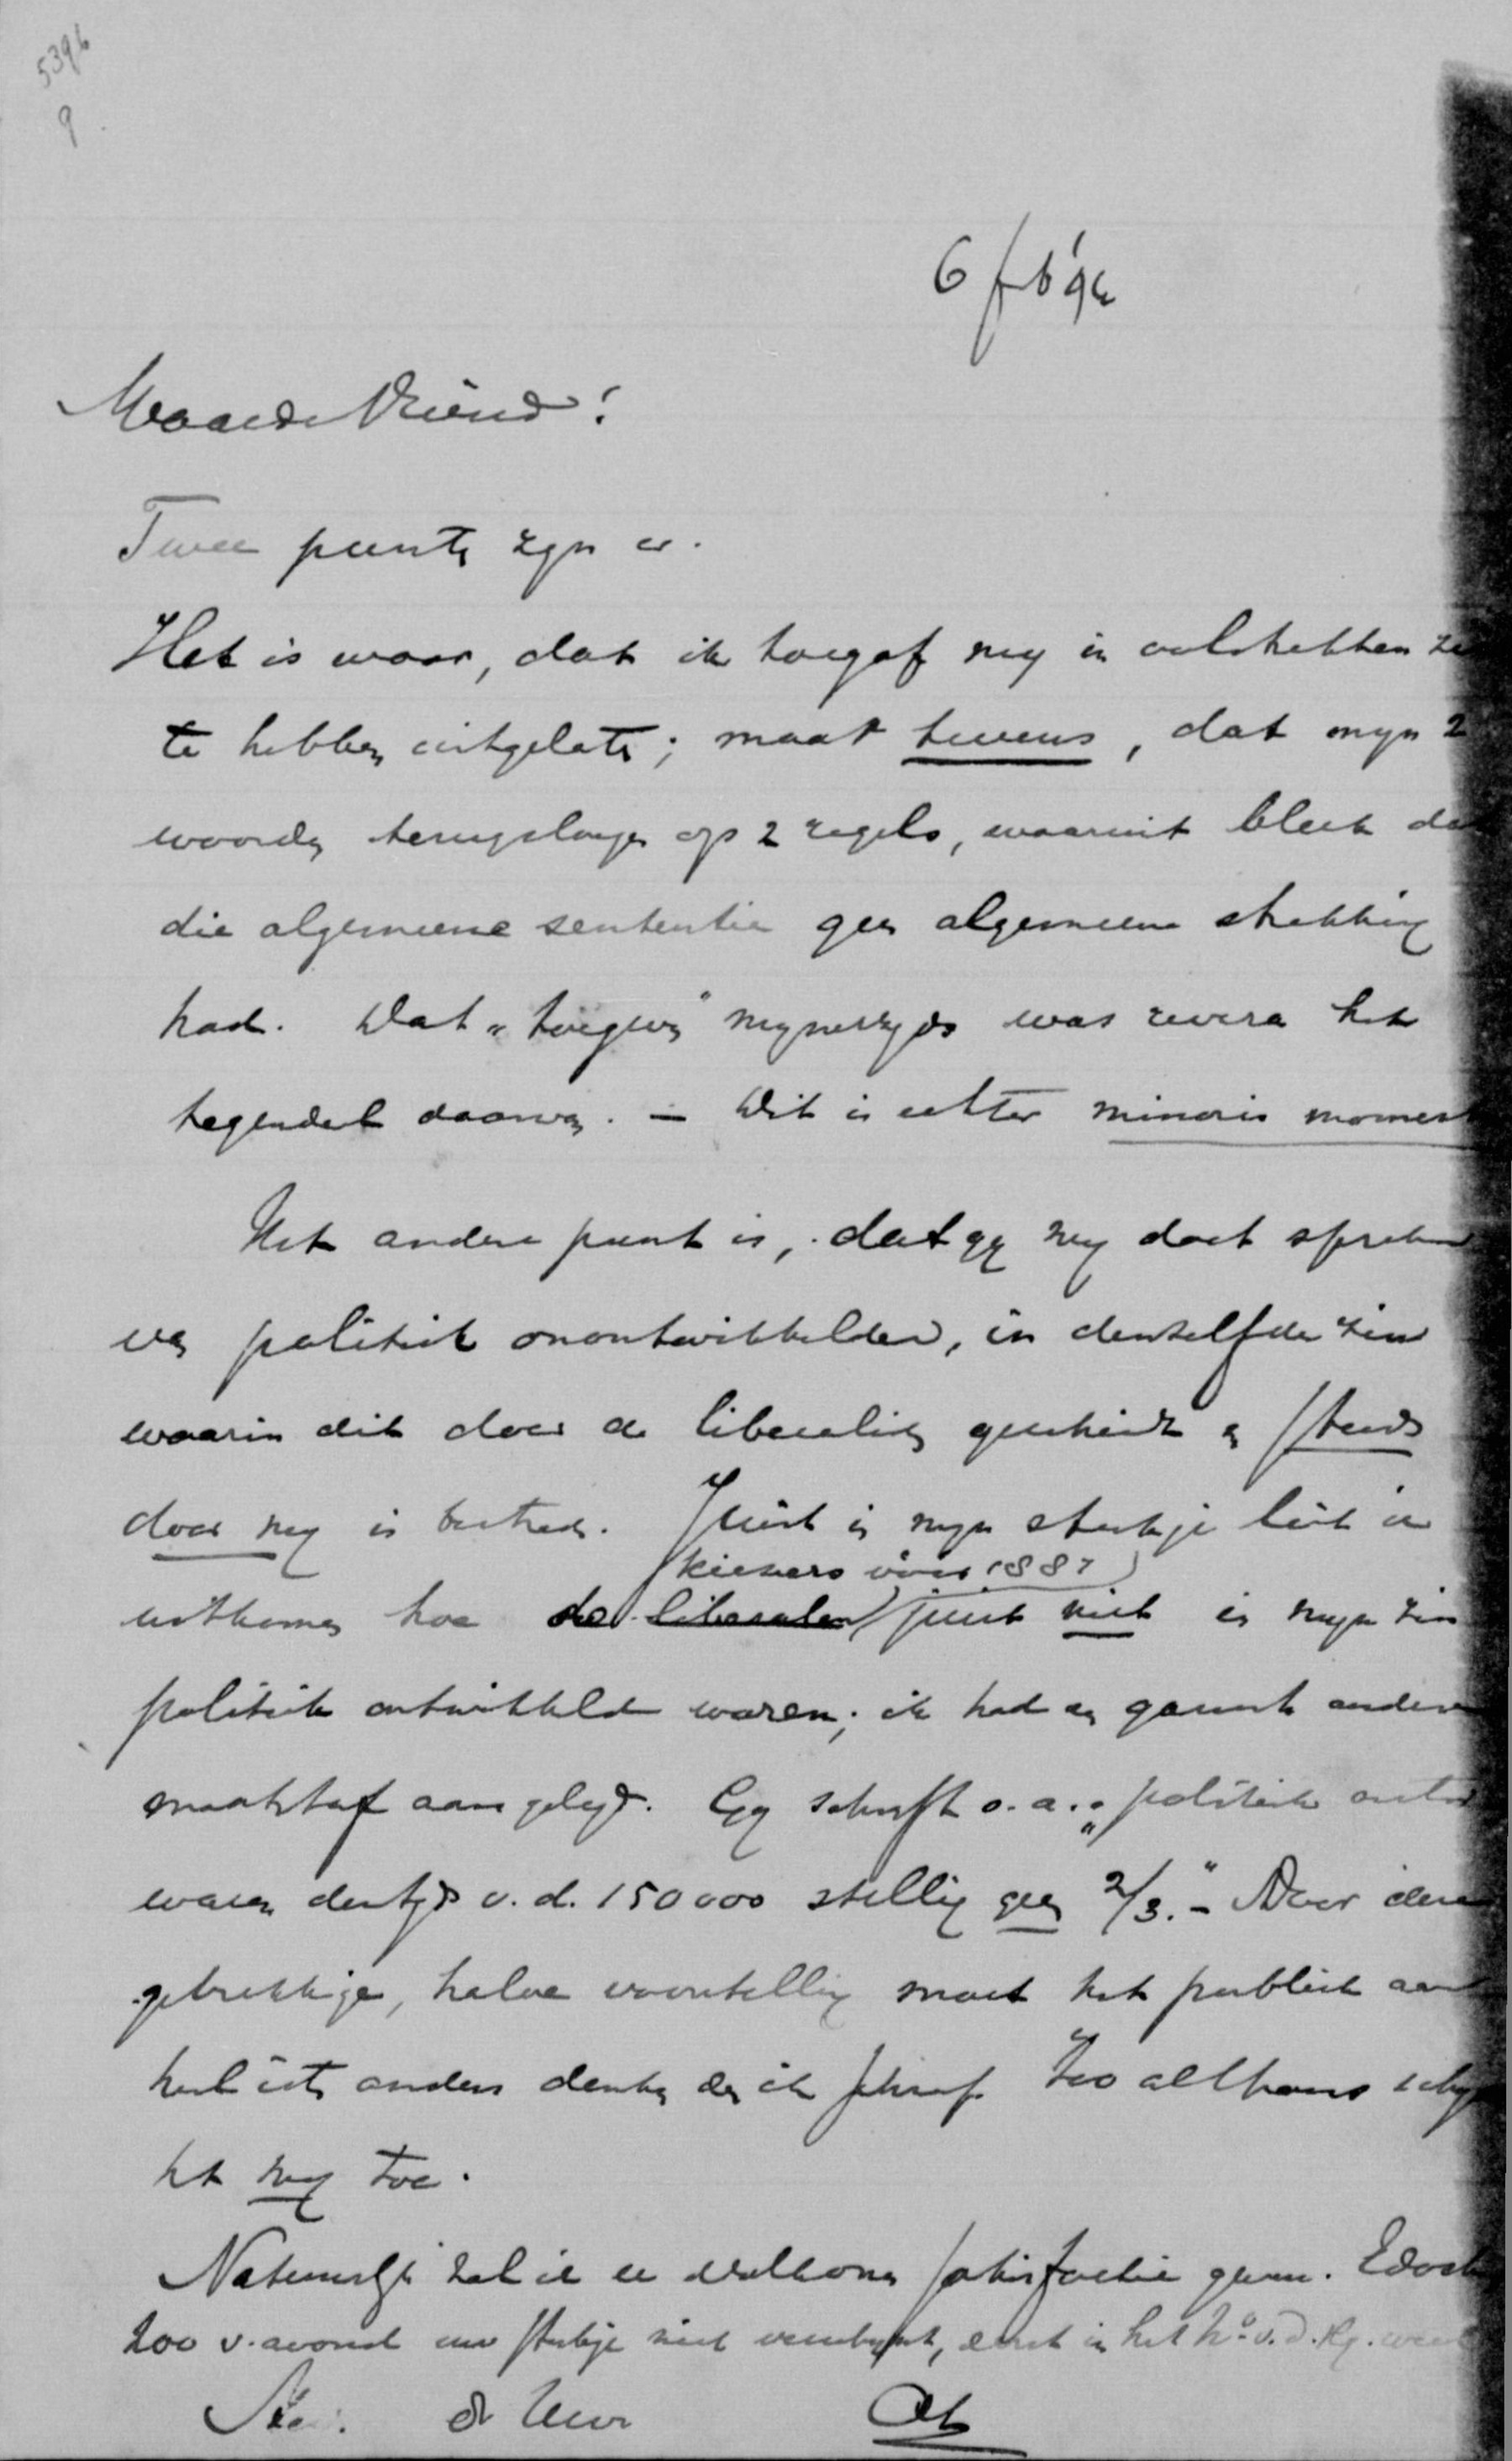 5396
9
6 feb '94
Waarde Vriend!
Twee punten zyn er.
Het is waar, dat ik toegaf my in volstrekten zin
te hebben uitgelaten; maar tevens, dat myn 2
woorden terugslaan op 2 regels, waaruit bleek dat
die algemeene sententie geen algemeene strekking
had. Dat "toegeven" mynerzyds was revera het
tegendeel daarvan. — Dit is echter minoris momenti
Het andere punt is, dat gy my doet spreken
van politiek onontwikkelden, in denzelfden zin
waarin dit door de liberalisten geschiedt en steeds
door my is bestreden. Juist in myn stukje liet ik
kiezers vóór 1887
uitkomen hoe de liberalen juist niet in myn zin
politiek ontwikkeld waren; ik had een gansch anderen
maatstaf aangelegd. Gy schryft o.a. "politiek ontw
waren destyds v.d. 150000 stellig geen 2/3." — Door deze
gebrekkige, halve voorstelling moet het publiek aan
heel iets anders denken dan ik schreef. Zoo althans schynt
het my toe.
Natuurlyk zal ik u volkomen satisfactie geven. Edoch
zoo v. avond uw stukje niet verschynt, eerst in het No. v. d. Kg. week
t. de Uwe